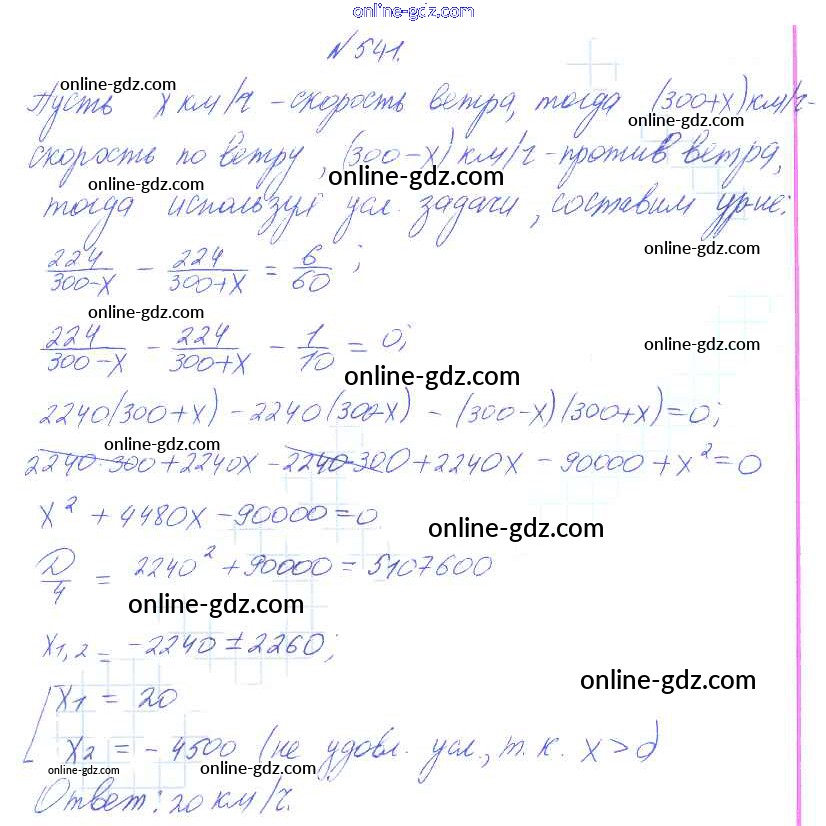 online-gdz.com
N541.
online-gdz.com
Пусть x км/ч - скорость ветра, тогда (300+x) км/ч -
online-gdz.com
скорость по ветру, (300-x) км/ч - против ветра,
online-gdz.com online-gdz.com
тогда используя усл. задачи, составим ур-ие:
online-gdz.com
224/(300-x) - 224/(300+x) = 6/60;
online-gdz.com
224/(300-x) - 224/(300+x) - 1/10 = 0;
online-gdz.com
online-gdz.com
2240(300+x) - 2240(300-x) - (300-x)(300+x)=0;
online-gdz.com
2240·300+2240x-2240·300+2240x-90000+x²=0
x²+4480x-90000=0
online-gdz.com
D/4 = 2240²+90000=5107600
online-gdz.com
x1,2 = -2240±2260;
online-gdz.com
x1 = 20
x2 = -4500 (не удовл. усл., т.к. x>d
online-gdz.com online-gdz.com
Ответ: 20 км/ч.
online-gdz.com